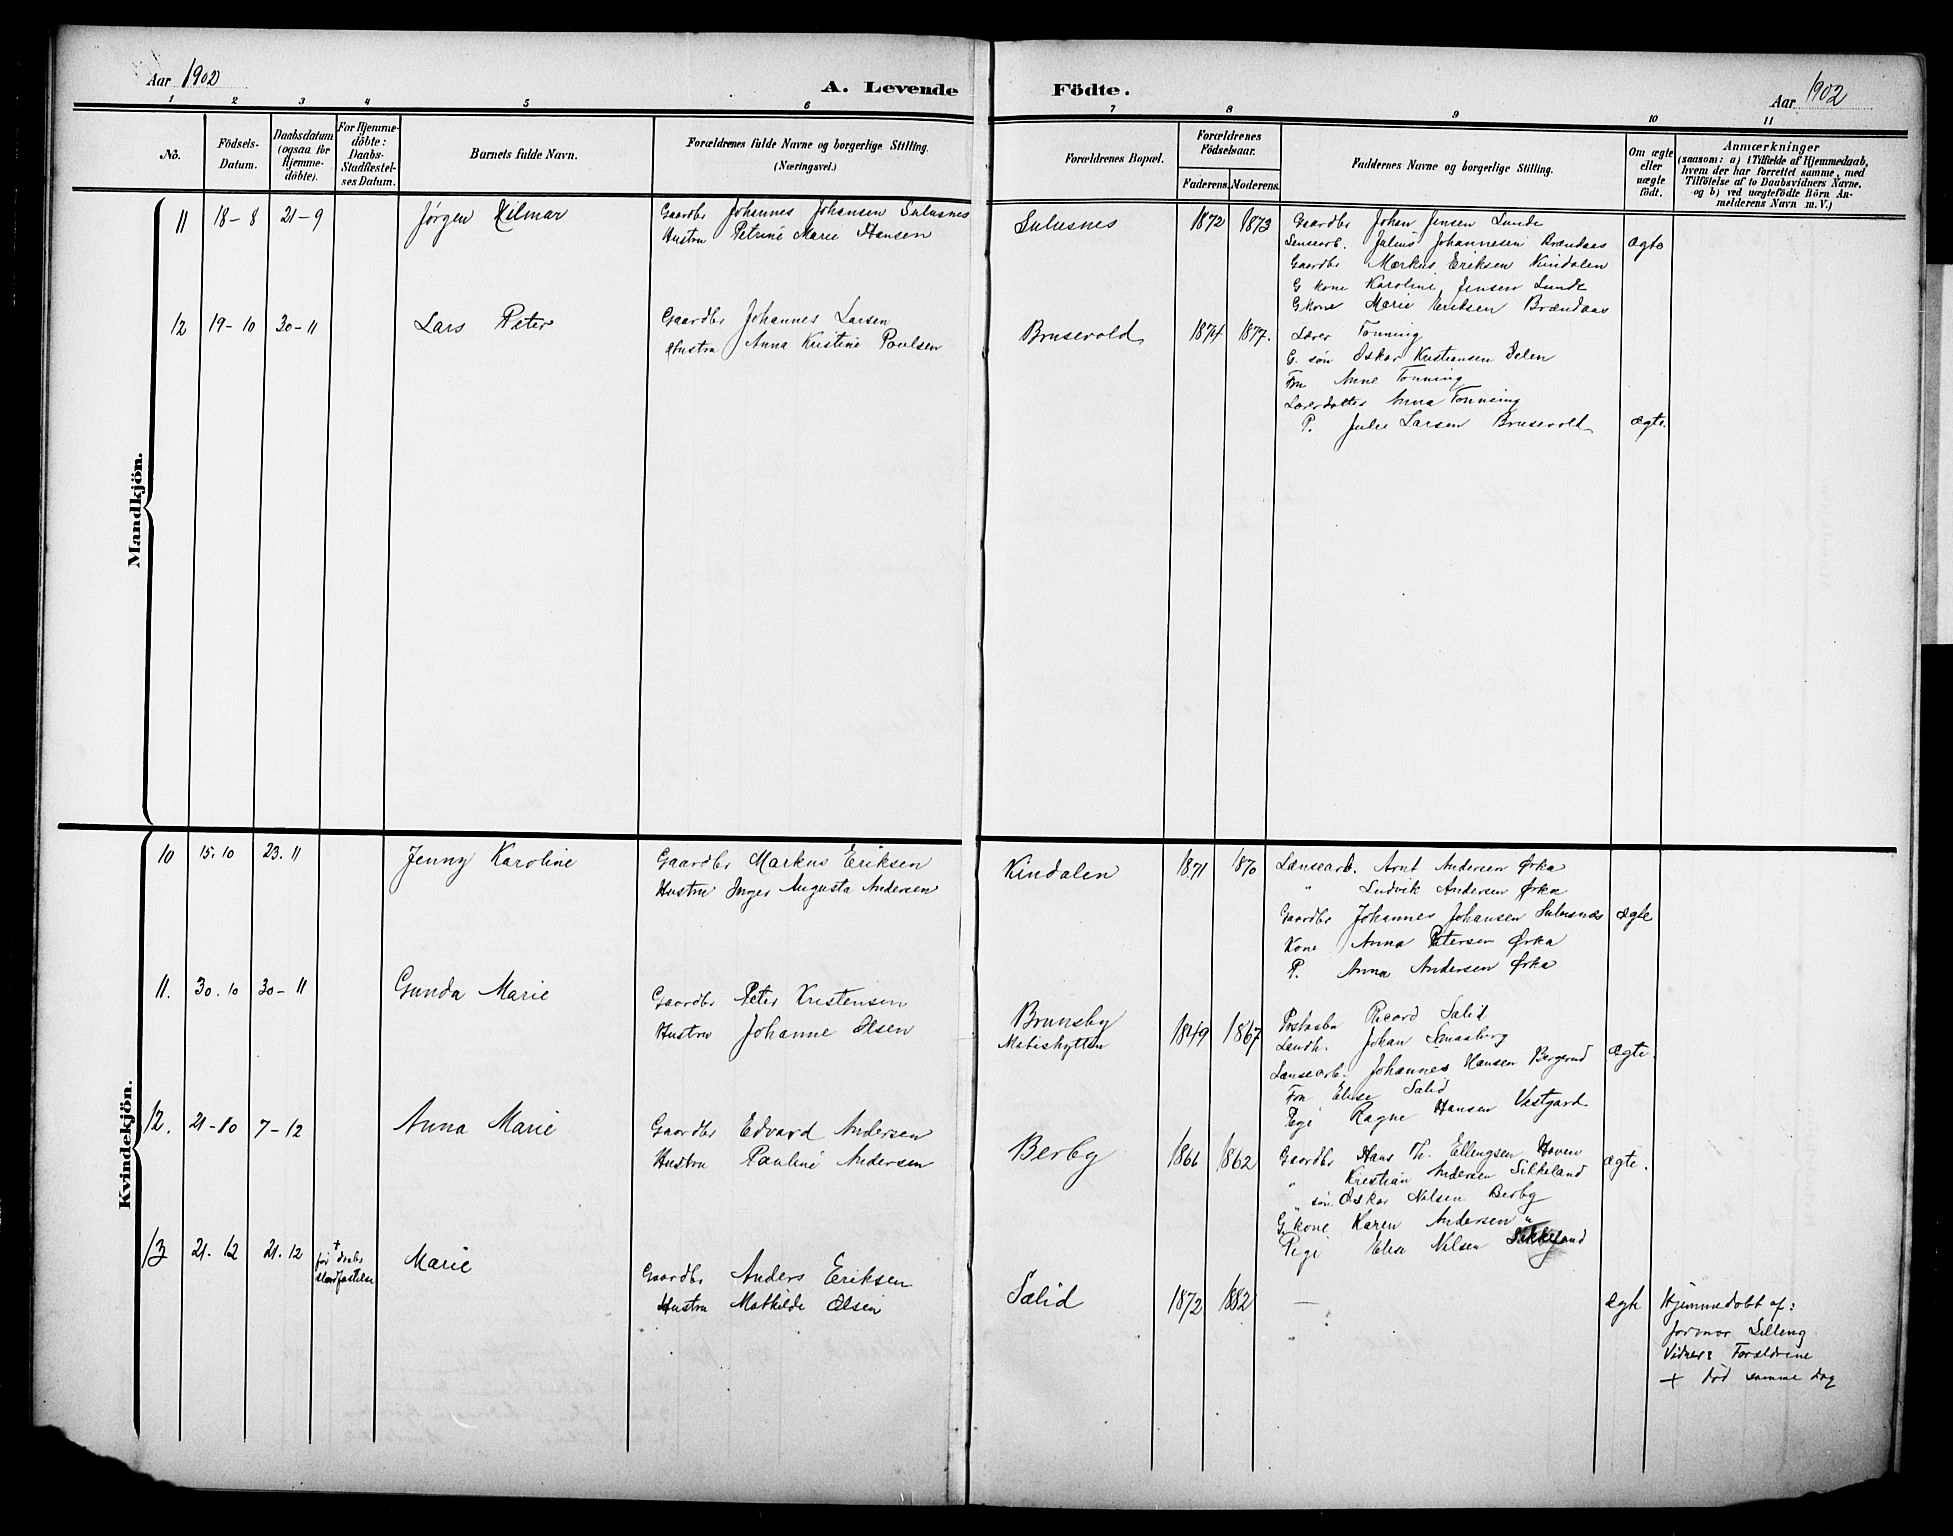 Aar 1902
A. Levende Födte.
Aar 1902
1 2 3 4 5 6 7 8 9 10 11
No.
Födsels-Datum.
Daabsdatum (ogsaa for Hjemme-döbte).
For Hjemme-döbte: Daabs-Stadfæstel-ses Datum.
Barnets fulde Navn.
Forældrenes fulde Navne og borgerlige Stilling.
(Næringsvei.)
Forældrenes Bopæl.
Forældrenes Födselsaar.
Faderens.
Moderens.
Faddernes Navne og borgerlige Stilling.
Om ægte eller uægte födt.
Anmærkninger
(saasom: a) i Tilfælde af Hjemmedaab, hvem der har forrettet samme, med Tilföielse af to Daabsvidners Navne, og b) ved uægtefödte Börn An-melderens Navn m. V.)
Mandkjön.
11 18-8 21-9 Jørgen Hilmar
Gaardbr Johannes Johansen Sulusnes
Hustru Petrine Marie Hansen
Sulusnes 1872 1873
Gaardbr Johan Jensen Lunde
Julius Johannesen Brændaas
Gaardbr Markus Eriksen Kindalen
G kone Karoline Jensen Lunde
Gkone Marie Eriksen Brændaas
ægte
12 19-10 30-11 Lars Peter
Gaardbr Johannes Larsen
Hustru Anna Kristine Paulsen
Brusevold 1874 1877.
Lærer Tonning
G. søn Oskar Kristiansen Delen
Fru Anne Tonning
Lærerdatter Anna Tonning
P. Julie Larsen Brusevold
ægte.
Kvindekjön.
10 15.10 23.11 Jenny Karoline
Gaardbr Markus Eriksen
Hustru Inger Augusta Andersen
Kindalen 1871 1870
Lænsearb. Arnt Andersen Ørka
" Ludvik Andersen Ørka
Gaardbr Johannes Johansen Sulusnæs
Kone Anna Petersen Ørka
P. Anna Andersen Ørka
ægte
11. 30.10 30-11 Gunda Marie
Gaardbr Peter Kristensen
Hustru Johanne Olsen
Brunsby
1849 1867
Ricard Salid
Landh. Johan Smaaberg
Lænsearb. Johannes Hansen Bergerud
Fru Elise Salid
Pige Ragne Hansen Vestgard
ægte.
12. 21-10 7-12 Anna Marie
Gaardbr Edvard Andersen
Hustru Pauline Andersen
Berby 1866 1862
Gaardbr Hans Th. Ellingsen Hoven
" Kristian Andersen Sikkeland
" søn Oskar Nilsen Berby
G.kone Karen Andersen "
Pige Elise Nilsen Sikkeland
ægte.
13 21. 12 21. 12
+ før daabs stadfæstelse
Marie
Gaardbr Anders Eriksen
Hustru Mathilde Olsen
Salid 1872 1882
—
ægte
Hjemmedøbt af:
jormor Selleng
Vidner: Forældrene
+ død samme dag